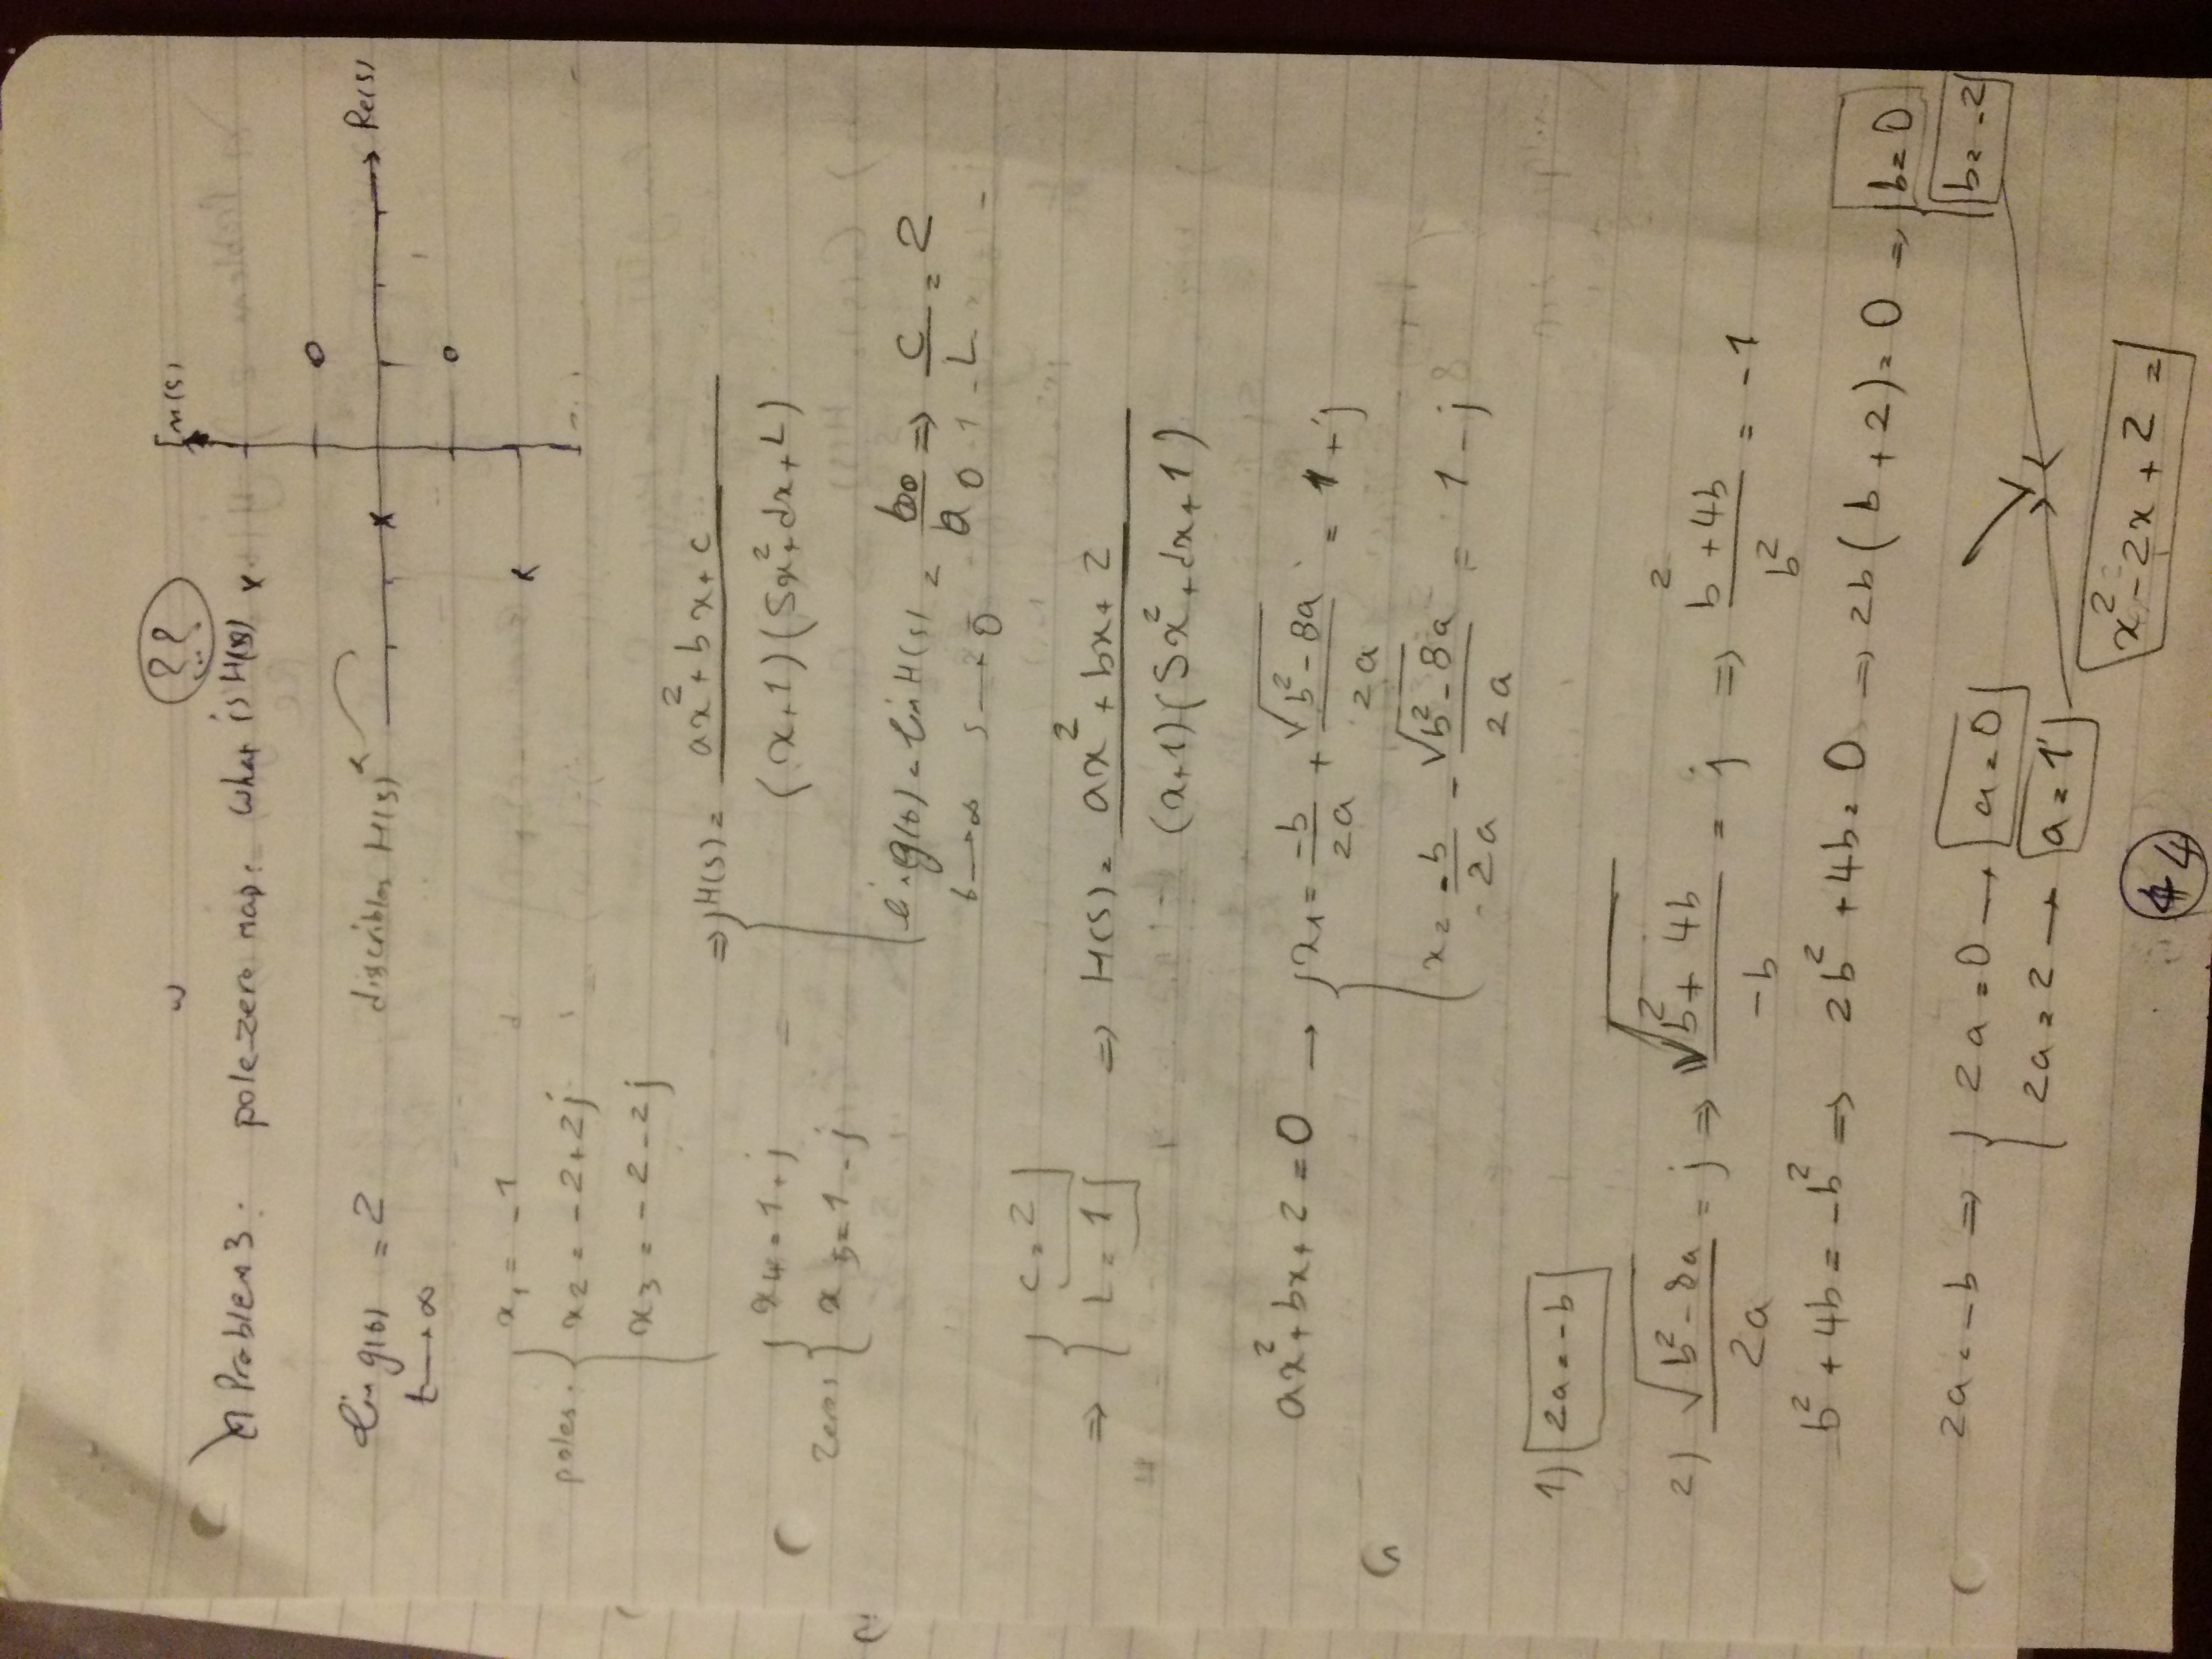 ??
Im(s)
Problem 3: pole-zero map. What is H(s)
Re(s)
lim g(t) = 2
t → ∞
discribles H(s)
poles: { x1 = -1
x2 = -2+2j
x3 = -2-2j
⇒ { H(s) = (ax² + bx + c) / ((x+1)(Sx² + dx + L))
zeros { x4 = 1+j
x5 = 1-j
lim g(t) = lim H(s) = b0/a0 ⇒ c/L = 2
t → ∞ s → 0
⇒ { c = 2
L = 1
⇒ H(s) = (ax² + bx + 2) / ((x+1)(Sx² + dx + 1))
ax² + bx + 2 = 0 → { x1 = -b/2a + √(b²-8a)/2a = 1+j
x2 = -b/2a - √(b²-8a)/2a = 1-j
1) 2a = -b
2) √(b²-8a)/2a = j ⇒ √(b²+4b)/-b = j ⇒ (b²+4b)/b² = -1
b² + 4b = -b² ⇒ 2b² + 4b = 0 ⇒ 2b(b+2) = 0 ⇒ { b = 0
b = -2
2a = -b ⇒ { 2a = 0 → a = 0
2a = 2 → a = 1
x² - 2x + 2 =
4